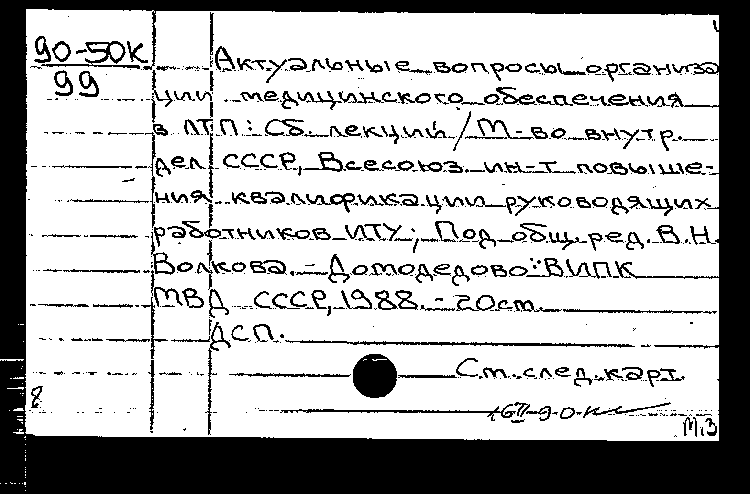 90-50К
99
Актуальные вопросы организа
ции медицинского обеспечения
в ЛТП: Сб. лекций / М-во внутр.
дел СССР, Всесоюз. ин-т повыше-
ния квалификации руководящих
работников ИТУ; Под общ. ред. В.Н.
Волкова. - Домодедово: ВИПК
МВД СССР, 1988. - 20см.
ДСП.
См. след. карт.
8
М,З